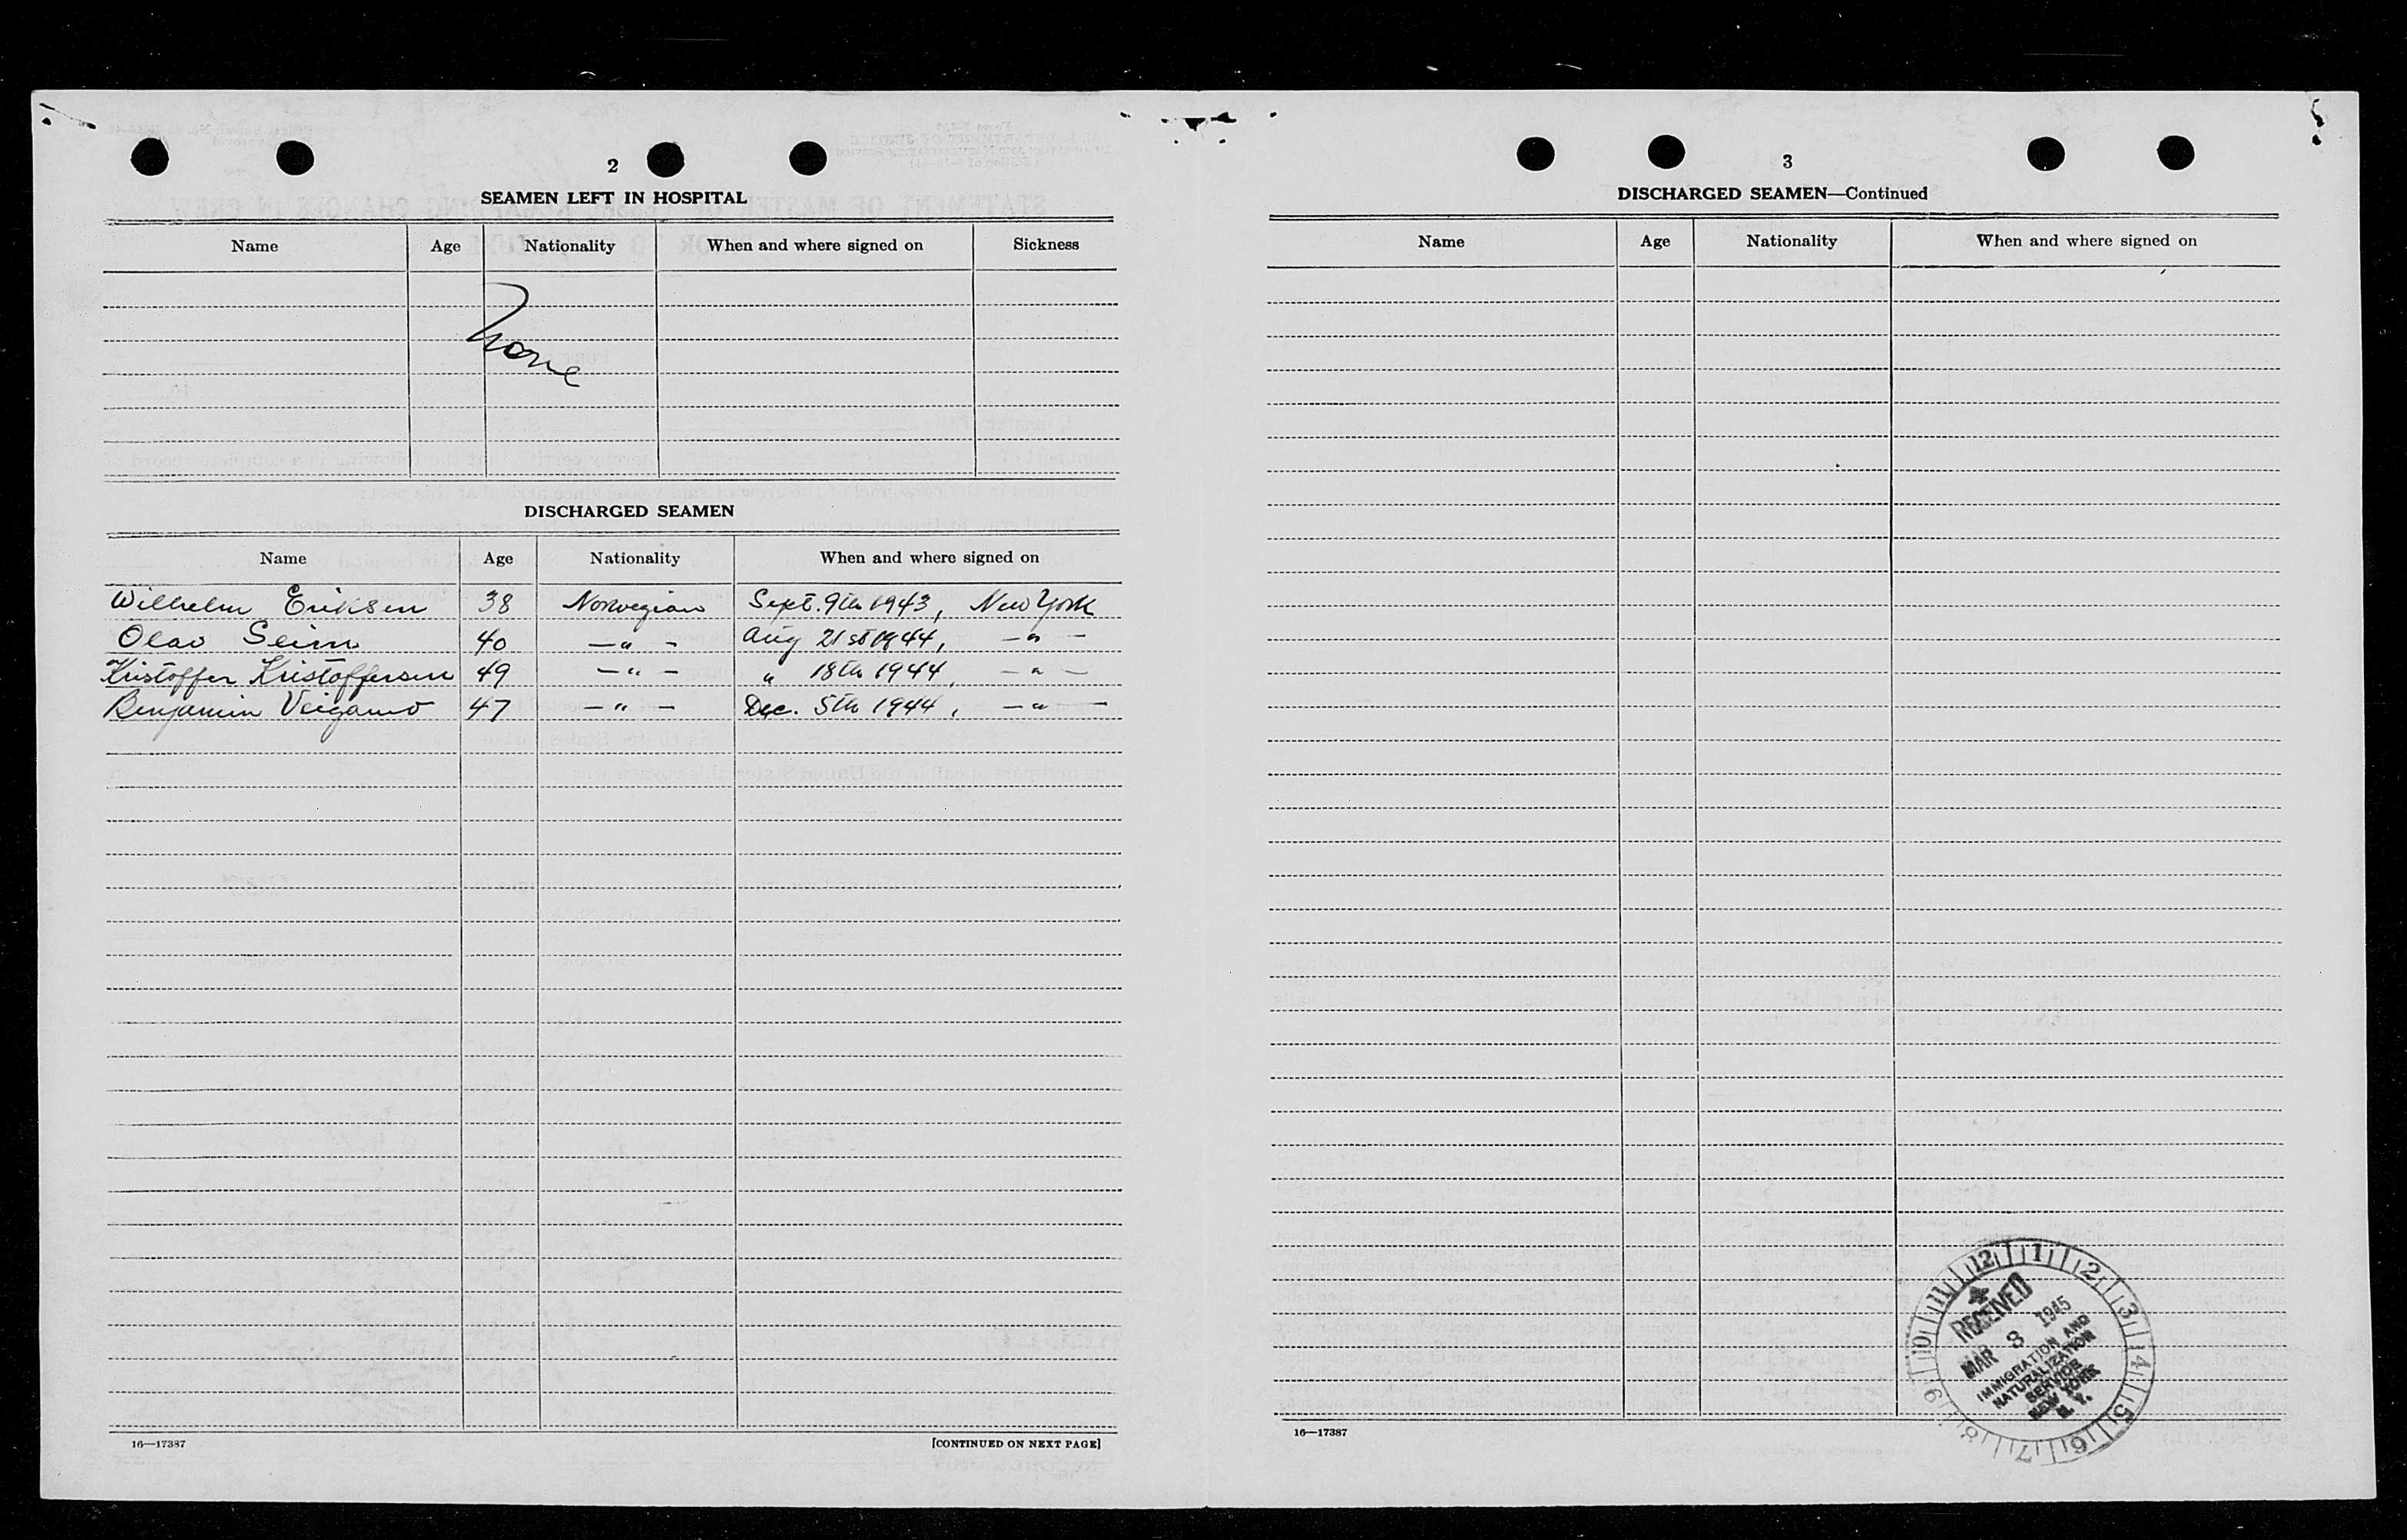 2
SEAMEN LEFT IN HOSPITAL
Name Age Nationality When and where signed on Sickness
None
DISCHARGED SEAMEN
Name Age Nationality When and where signed on
Wilhelm Eriksen 38 Norwegian Sept. 9th 1943, New York
Olav Seim 40 —"— Aug 21st 1944, —"—
Kristoffer Kristoffersen 49 —"— " 18th 1944, —"—
Benjamin 47 —"— Dec. 5th 1944, —"—
16—17387 [CONTINUED ON NEXT PAGE]
3
DISCHARGED SEAMEN—Continued
Name Age Nationality When and where signed on
12 1 2 3 4 5 6 7 8 9 10 11
RECEIVED
MAR 8 1945
IMMIGRATION AND
NATURALIZATION
SERVICE
NEW YORK
N. Y.
16—17387